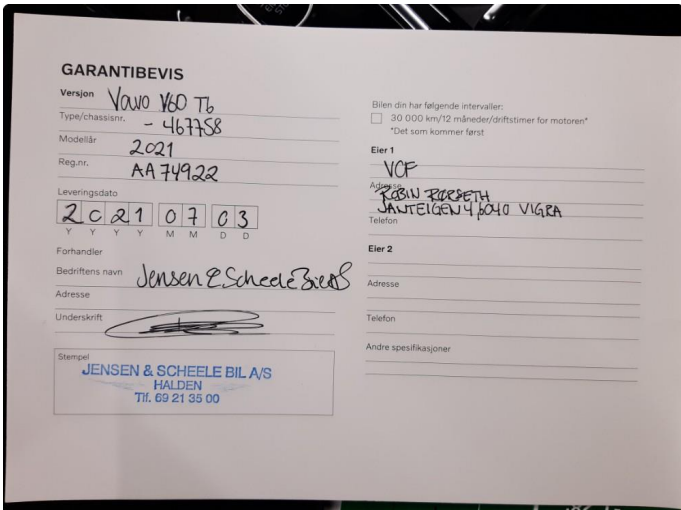 GARANTIBEVIS
Versjon Volvo V60 T6
Type/chassisnr. - 467758
Modellår 2021
Reg.nr. AA74922
Leveringsdato
2021 07 03
Y Y Y Y M M D D
Forhandler
Bedriftens navn Jensen & Scheele Bil AS
Adresse
Underskrift
Stempel
JENSEN & SCHEELE BIL A/S
HALDEN
Tlf. 69 21 35 00
Bilen din har følgende intervaller:
30 000 km/12 måneder/driftstimer for motoren*
*Det som kommer først
Eier 1
VCF
Adresse ROBIN RØRSETH
JANTEIGEN 4, 6040 VIGRA
Telefon
Eier 2
Adresse
Telefon
Andre spesifikasjoner